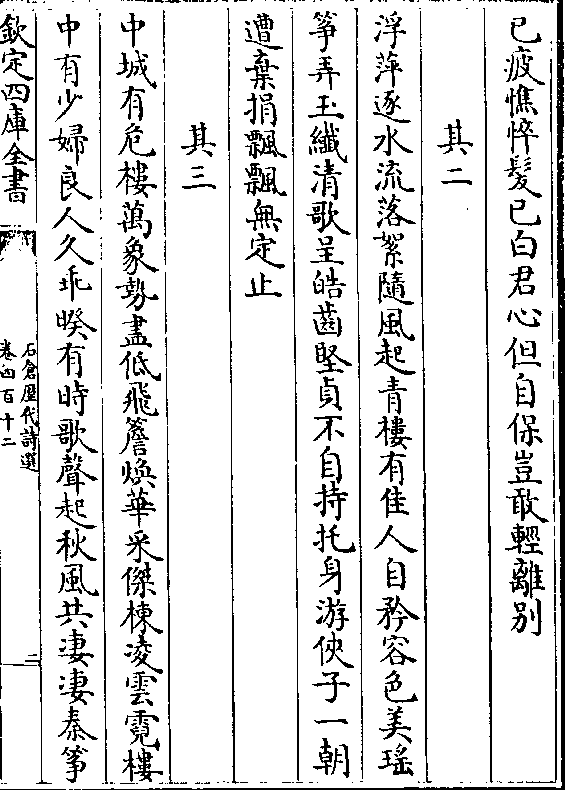 已疲憔悴髮已白君心但自保豈敢輕離別
其二
浮萍逐水流落絮隨風起青樓有佳人自矜容色美瑤
箏弄玉纖清歌呈皓齒堅貞不自持托身游俠子一朝
遭棄捐飄飄無定止
其三
中城有危樓萬象勢盡低飛簷煥華采傑棟凌雲霓樓
中有少婦良人久乖暌有時歌聲起秋風共淒淒秦箏
欽定四庫全書
石倉歷代詩選
卷四百十二
二